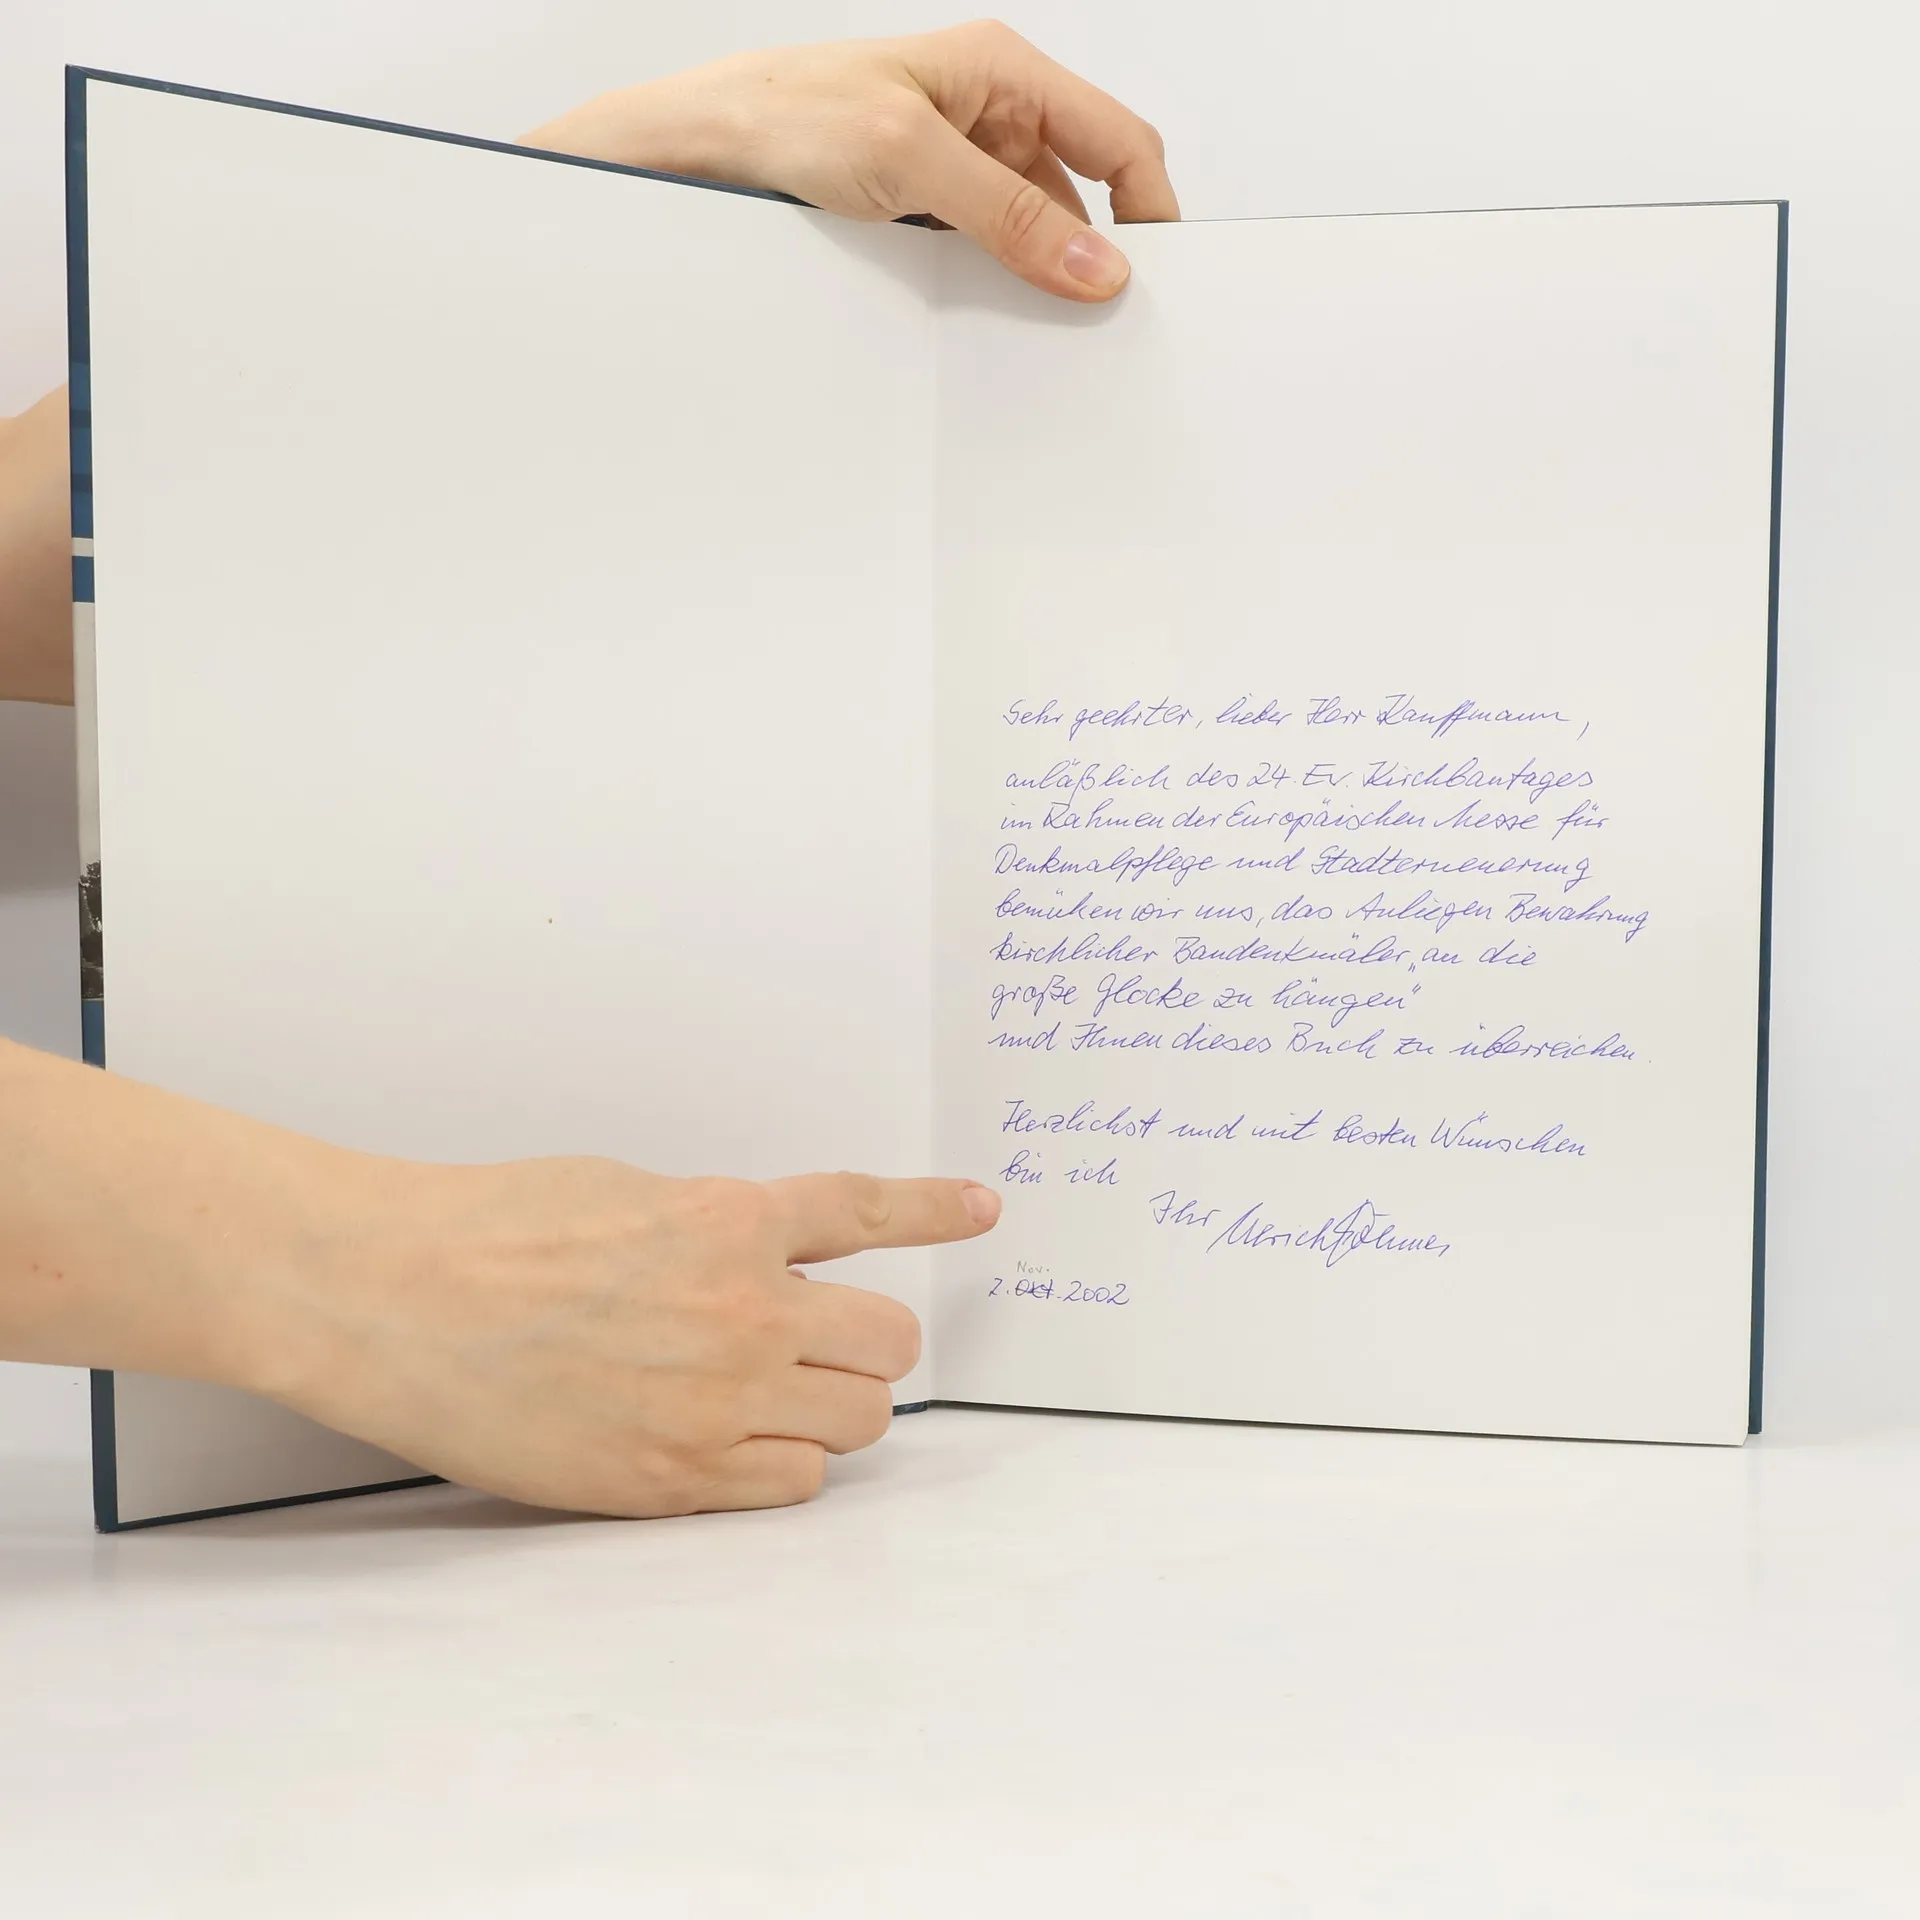 Sehr geehrter, lieber Herr Kauffmann,
anläßlich des 24. Ev. Kirchbautages
im Rahmen der Europäischen Messe für
Denkmalpflege und Stadterneuerung
bemühen wir uns, das Anliegen Bewahrung
kirchlicher Baudenkmäler „an die
große Glocke zu hängen"
und Ihnen dieses Buch zu überreichen.
Herzlichst und mit besten Wünschen
bin ich
Ihr Ulrich Böhmer
Nov.
2. Okt. 2002